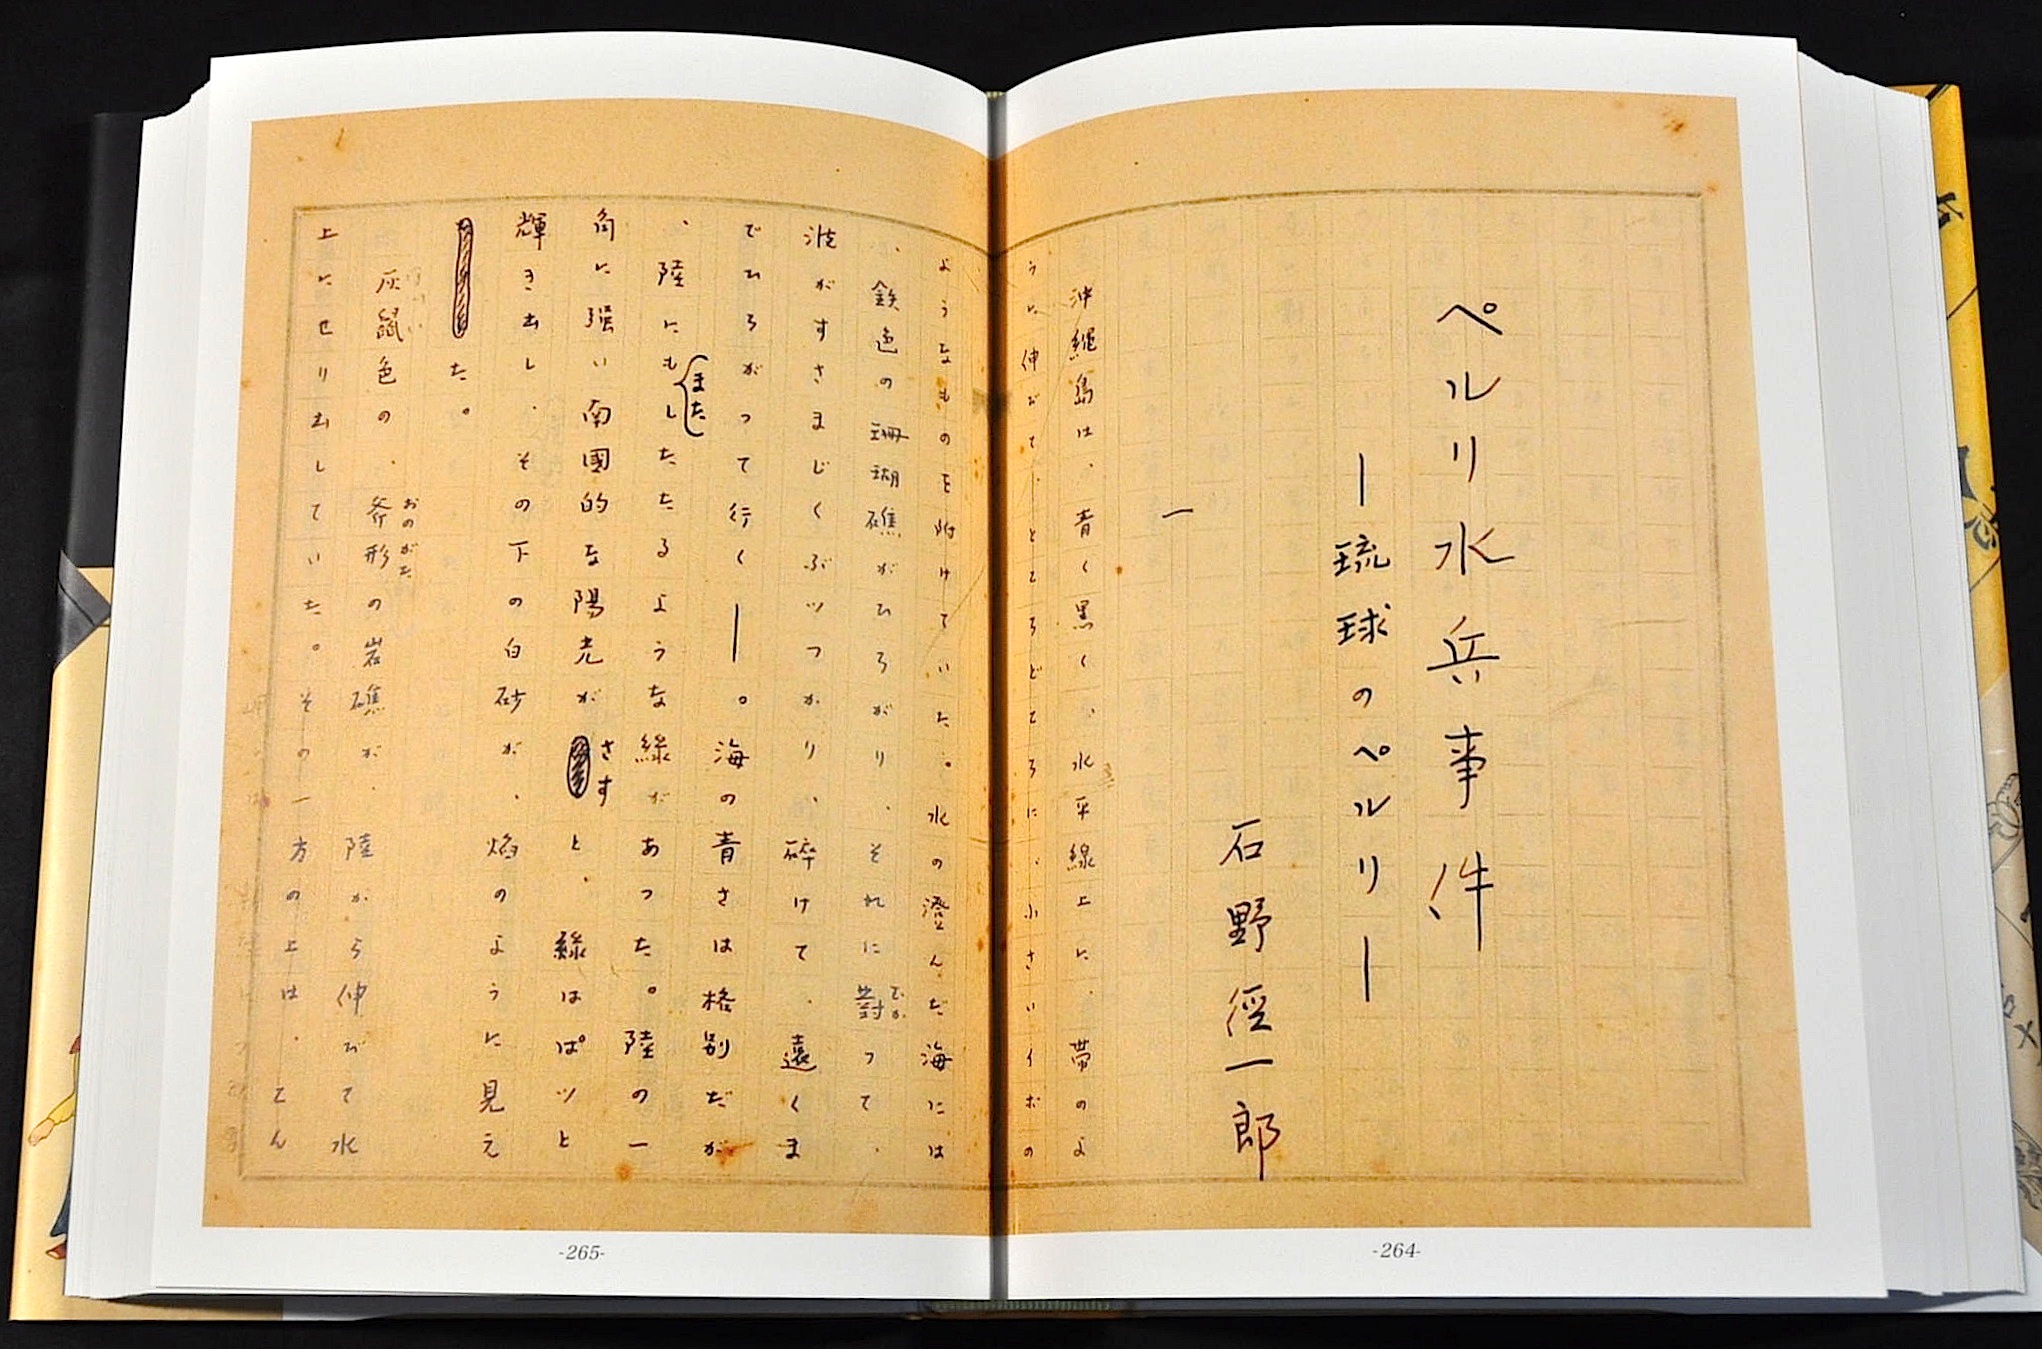 ペルリ水兵事件
―琉球のペルリ―
石野径一郎
一
沖縄島は、青く黒く、水平線上に、帯のよ
うに伸びて、ところどころに、小さいイボの
-264-
ようなものを附けていた。水の澄んだ海には
、鉄色の珊瑚礁がひろがり、それに対って、
波がすさまじくぶッつかり、碎けて、遠くま
でひろがって行く―。海の青さは格別だが
、陸にもしたたるような緑があった。陸の一
また
角に強い南國的な陽光が
さす
と、緑はぱッと
輝き出し、その下の白砂が、焔のように見え
た。
灰鼠色の、斧形の岩礁が、陸から伸びて水
おのがた
上にせり出していた。その一方の上は、てん
-265-